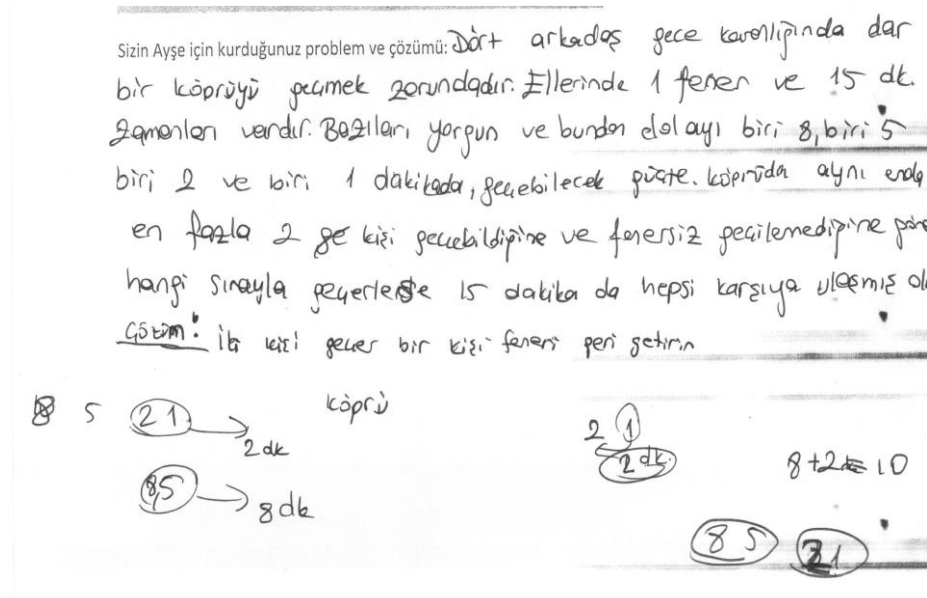 Sizin Ayşe için kurduğunuz problem ve çözümü: Dört arkadaş gece karanlığında dar
bir köprüyü geçmek zorundadır. Ellerinde 1 fener ve 15 dk.
zamanları vardır. Bazıları yorgun ve bundan dolayı biri 8, biri 5
biri 2 ve biri 1 dakikada, geçebilecek güçte. köprüde aynı anda
en fazla 2 ge kişi geçebildiğine ve fenersiz geçilemediğine göre
hangi sırayla geçerlerse 15 dakika da hepsi karşıya ulaşmış ol
Çözüm: iki kişi geçer bir kişi feneri geri getirir
8 5 2 1 köprü 2 1
2 dk 2 dk. 8+2=10
8,5 8 dk
8 5 2 1